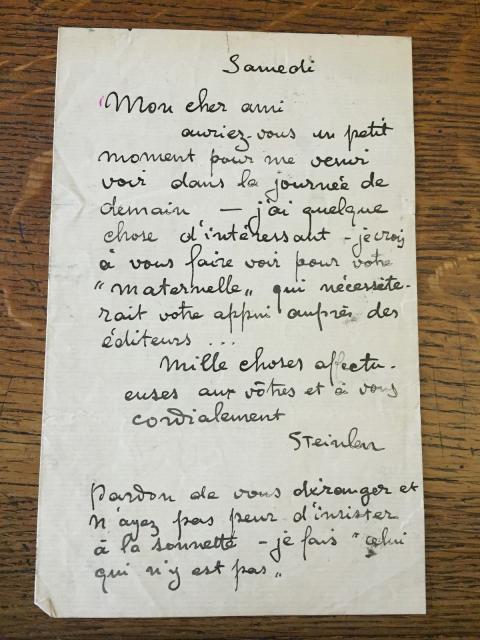 Samedi
Mon cher ami
auriez-vous un petit
moment pour me venir
voir dans la journée de
demain — j'ai quelque
chose d'intéressant - je crois
à vous faire voir pour votre
"maternelle" qui nécessite-
rait votre appui auprès des
éditeurs ...
Mille choses affectu-
euses aux vôtres et à vous
cordialement
Steinlen
Pardon de vous déranger et
n'ayez pas peur d'insister
à la sonnette - je fais "celui
qui n'y est pas"